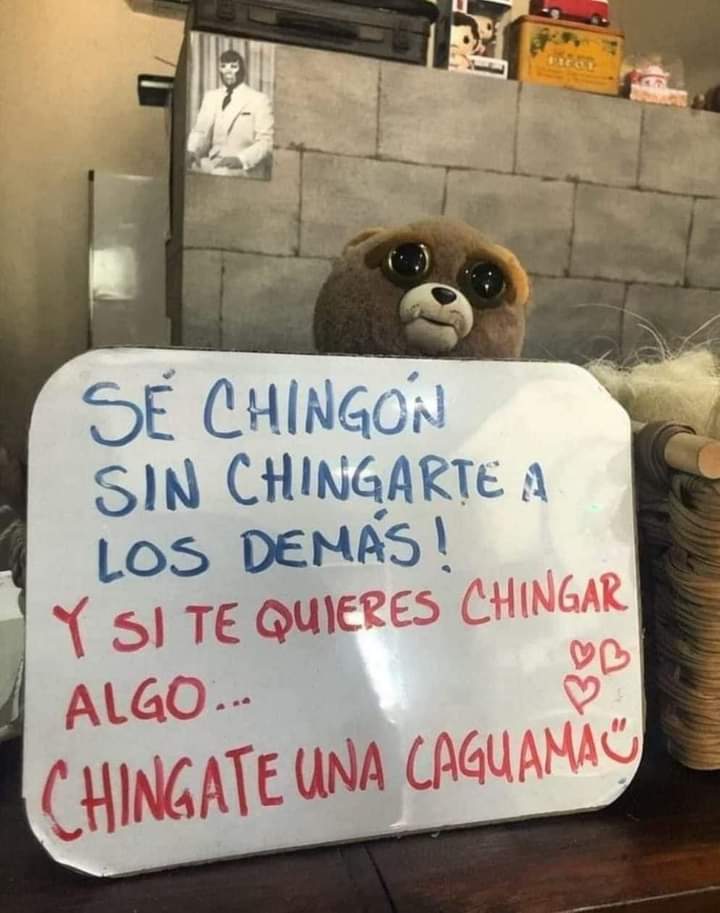 SÉ CHINGÓN
SIN CHINGARTE A
LOS DEMÁS!
Y SI TE QUIERES CHINGAR
ALGO...
CHINGATE UNA CAGUAMA